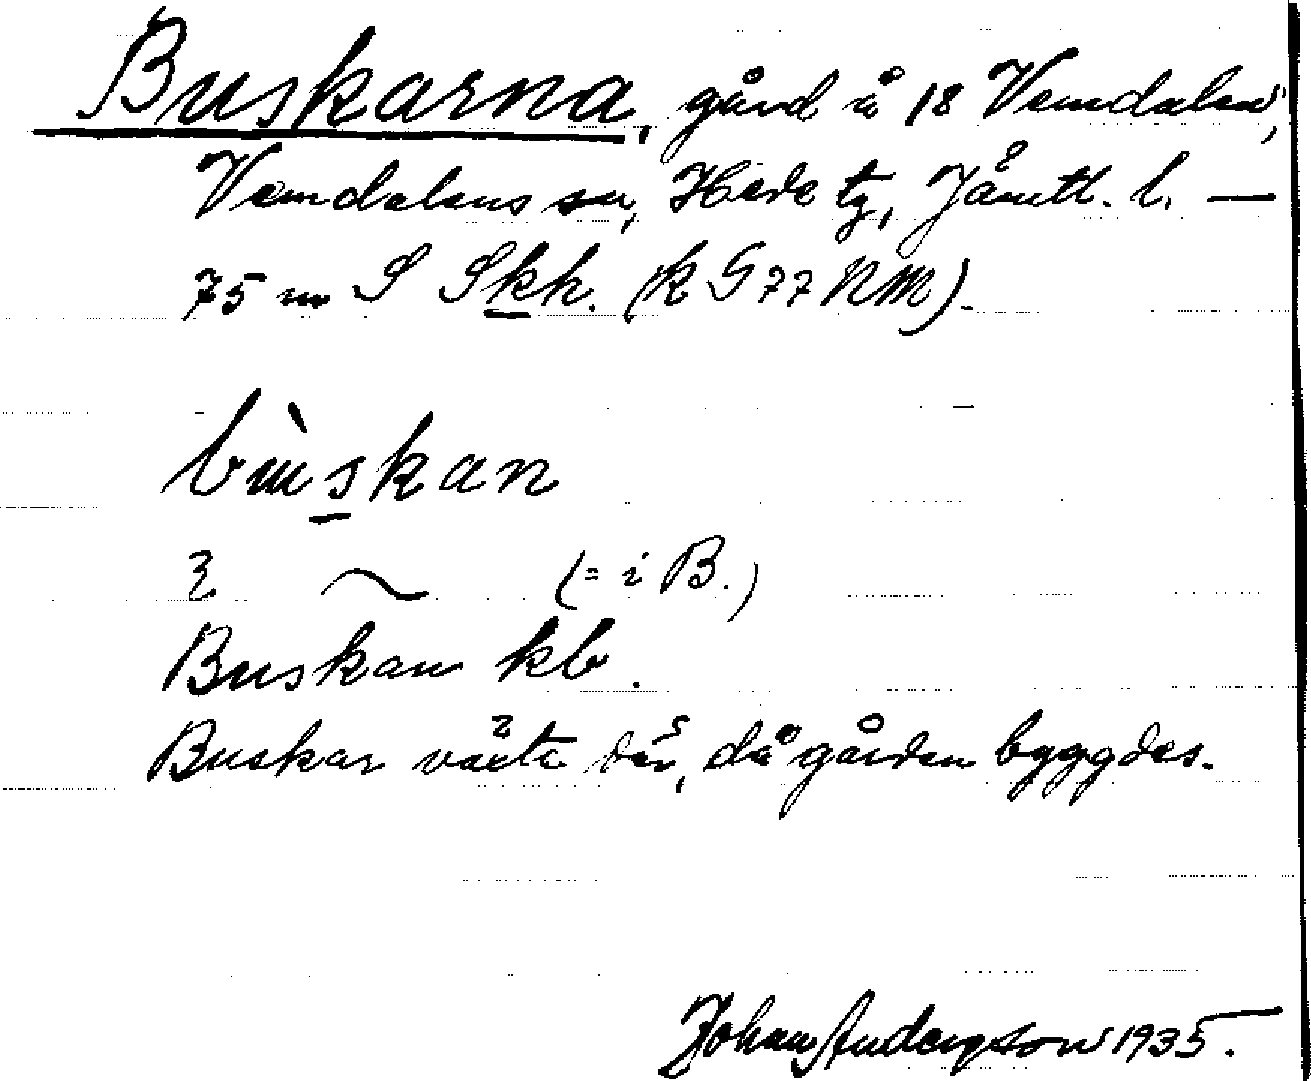 Buskarna, gård å 18 Vemdalen,
Vemdalens sn, Hede tg, Jämtl. l. —
75 m S Skh. (k G 77 NM).
bùskan
(= i B.)
Buskan kb.
Buskar växte där, då gården byggdes.
Johan Anderson 1935.